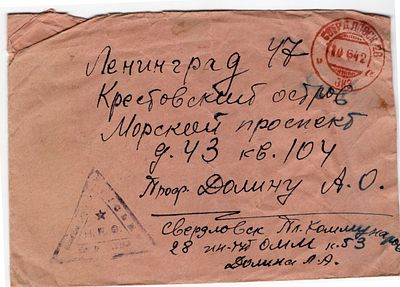 Ленинград 47
Крестовский остров
Морской проспект
д. 43 кв. 104
Проф. Долину А. О.
Свердловск Пл. Коммунаров
28 ОММ к. 53
Долина Л. А.